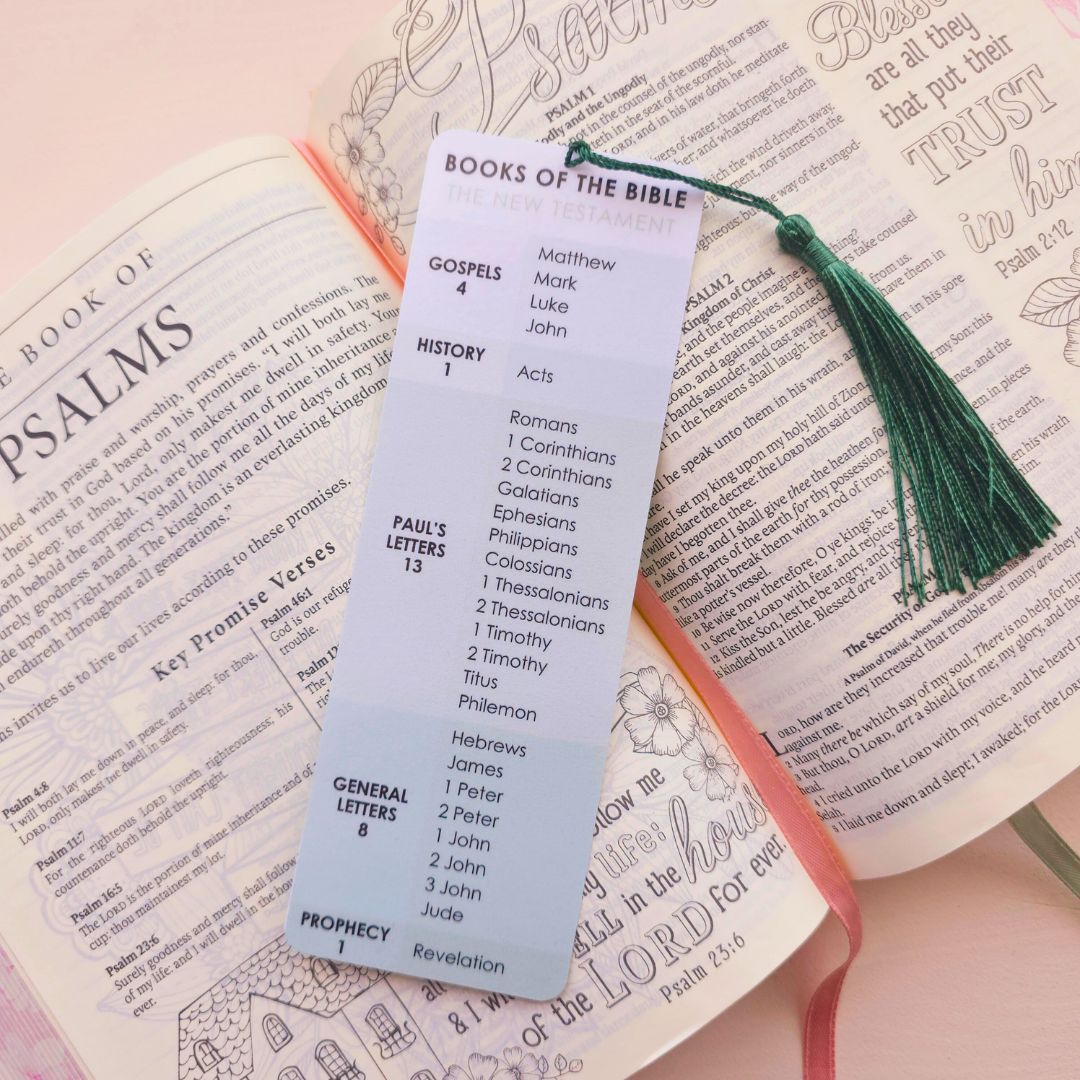 BOOKS OF THE BIBLE
THE NEW TESTAMENT
GOSPELS
4
Matthew
Mark
Luke
John
HISTORY
1
Acts
PAUL'S
LETTERS
13
Romans
1 Corinthians
2 Corinthians
Galatians
Ephesians
Philippians
Colossians
1 Thessalonians
2 Thessalonians
1 Timothy
2 Timothy
Titus
Philemon
GENERAL
LETTERS
8
Hebrews
James
1 Peter
2 Peter
1 John
2 John
3 John
Jude
PROPHECY
1
Revelation
BOOK OF
PSALMS
with praise and worship, prayers and confessions. The
trust in God based on his promises, "I will both lay me
and sleep: for thou, Lord, only makest me dwell in safety. You
behold the upright. You are the portion of mine inheritance
goodness and mercy shall follow me all the days of my life
upon thy right hand. The kingdom is an everlasting kingdom
endureth throughout all generations."
invites us to live our lives according to these promises.
Key Promise Verses
Psalm 4:8
I will both lay me down in peace, and sleep: for thou,
LORD, only makest me dwell in safety.
Psalm 11:7
For the righteous LORD loveth righteousness; his
countenance doth behold the upright.
Psalm 16:5
The LORD is the portion of mine inheritance and of
cup: thou maintainest my lot.
Psalm 23:6
Surely goodness and mercy shall follow
of my life: and I will dwell in the
ever.
Psalm 46:1
God is our refuge
trouble.
follow me
life:
& I
in the house
of the LORD for ever
Psalm 23:6
Psalms
PSALM 1
and the Ungodly
not in the counsel of the ungodly, nor stan-
in the seat of the scornful.
LORD; and in his law doth he meditate
rivers of water, that bringeth forth
wither; and whatsoever he doeth
which the wind driveth away.
judgment, nor sinners in the
righteous: but the way of the ungod-
PSALM 2
Kingdom of Christ
and the people imagine a
earth set themselves, and the
take counsel
LORD, and against his anointed,
bands asunder, and cast away their
from us.
in the heavens shall laugh: the
have them in
he speak unto them in his wrath,
in his sore
have I set my king upon my holy hill of Zion.
I will declare the decree: the LORD hath said unto
my Son; this
day have I begotten thee.
8 Ask of me, and I shall give thee the heathen for
and the
uttermost parts of the earth for thy possession.
9 Thou shalt break them with a rod of iron;
in pieces
like a potter's vessel.
10 Be wise now therefore, O ye kings: be
of the earth.
11 Serve the LORD with fear, and rejoice
12 Kiss the Son, lest he be angry, and ye
his wrath
is kindled but a little. Blessed are all
The Security of God
A Psalm of David, when he fled from
LORD, how are they increased that trouble me! many are they
against me.
2 Many there be which say of my soul, There is no help for him
3 But thou, O LORD, art a shield for me; my glory, and the
head.
4 I cried unto the LORD with my voice, and he heard
Selah.
5 I laid me down and slept; I awaked; for the LORD
Blessed
are all they
that put their
TRUST
in him
Psalm 2:12